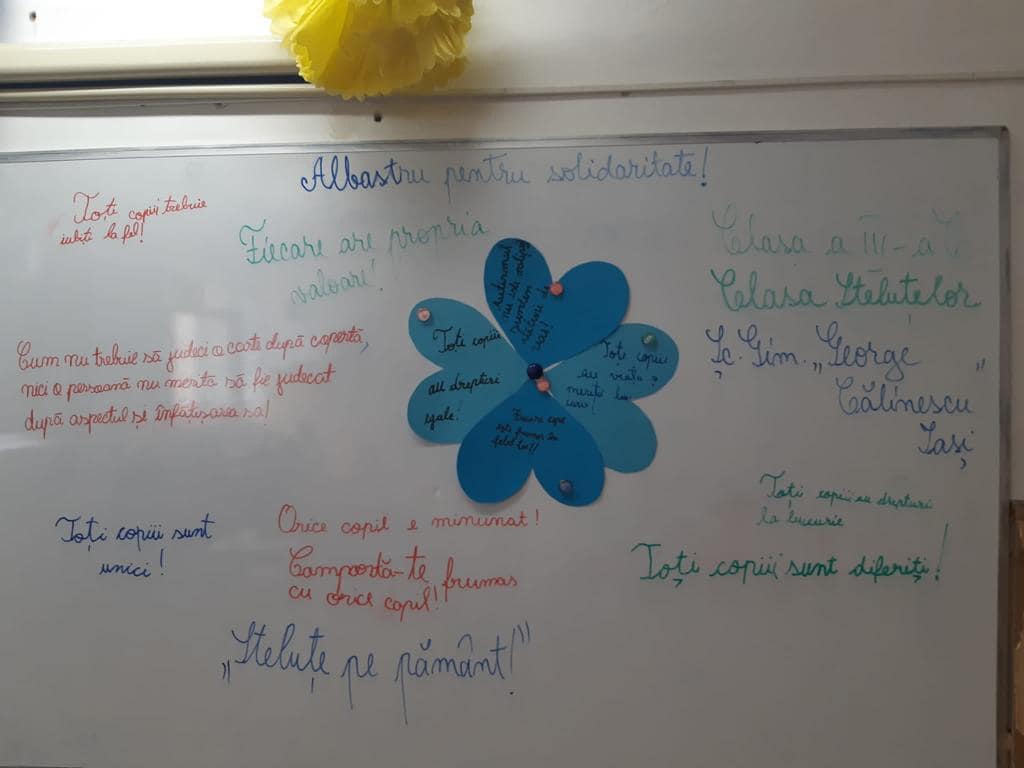 Albastru pentru solidaritate!
Toți copiii trebuie
iubiți la fel!
Fiecare are propria
valoari!
Clasa a III-a C
Clasa Steluțelor
Șc. Gim. „George
Călinescu"
Iași
Cum nu trebuie să judeci o carte după copertă,
nici o persoană nu merită să fie judecat
după aspectul și înfățișarea sa!
Autismul
nu este
Toți copiii
au drepturi
egale!
Toți copiii
au viață,
merită
Fiecare copil
este frumos în
felul lui!
Toți copiii sunt
unici!
Orice copil e minunat!
Comportă-te frumos
cu orice copil!
Toți copiii au drepturi
la bucurie
Toți copiii sunt diferiți!
„Steluțe pe pământ!"